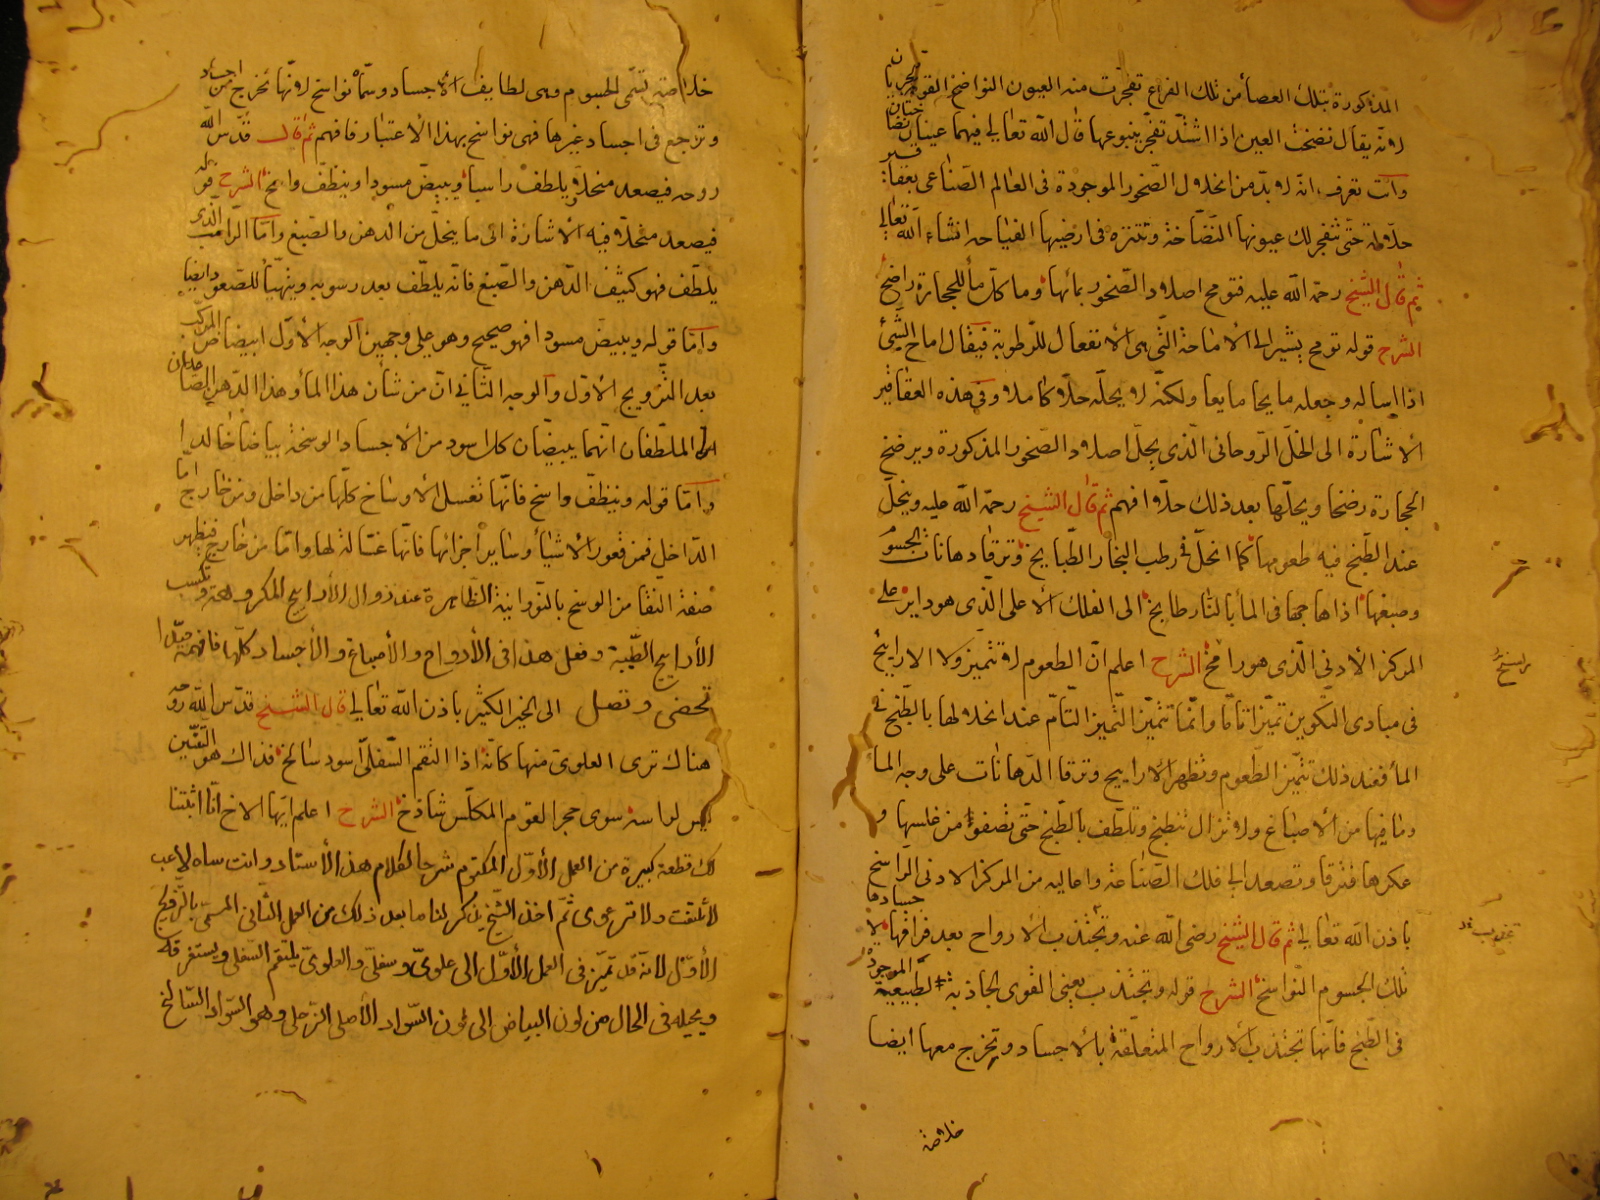 المذكورة بتلك العصا من تلك الفراع تفجرت منه العيون النواضخ القو الجريان
لانه يقال نضخت العين اذا اشتد تفجر ينبوعها قال الله تعالى فيهما عينان نضاختان
وانت تعرف انه لا بد من انحلال الصخور الموجودة فى العالم الصناعى بعقاقير
حلالة حتى تنفجر لك عيونها النضاخة وتتنزه فى ارضيها الفياحه انشاء الله تعالى
ثم قال الشيخ رحمة الله عليه فتومح اصلاد الصخور بمائها وما كل مأ للحجارة راضخ
الشرح قوله تومح يشير الى الاماخة التى هى الانفعال للرطوبة فيقال اماح الشئ
اذا اساله وجعله مايحا مايعا ولكنه لا يحله حلا كاملا وفى هذه العقاقير
الاشارة الى الخل الروحانى الذى يحل اصلاد الصخور المذكورة ويرضخ
الحجارة رضخا ويحلها بعد ذلك حلا افهم ثم قال الشيخ رحمة الله عليه وينحل
عند الطبخ فيه طعومها كما انحل فى رطب البخار الطبايخ وترقا دهانات الجسوم
وصبغها اذا هاجها فى المأ بالنار طابخ الى الفلك الاعلى الذى هو داير على
المركز الادنى الذى هو رامخ الشرح اعلم ان الطعوم لا تتميز ولا الارايح
راسخ
فى مبادى التكوين تميزا تاما وانما تتميز التميز التام عند انحلالها بالطبخ فى
المأ فعند ذلك تتميز الطعوم وتظهر الارايح وترقا الدهانات على وجه المأ
وما فيها من الاصباغ ولا تزال تنطبخ وتلطف بالطبخ حتى تصفو من غلسها و
عكرها فترقا وتصعد الى فلك الصناعة واعاليه من المركز الادنى الراسخ
باذن الله تعالى ثم قال الشيخ رضى الله عنه وتجتذب الارواح بعد فراقها لا جسادها
تلك الجسوم النواسخ الشرح قوله وتجتذب يعنى القوى الجاذبة الطبيعية الموجودة
فى الطبخ فانها تجتذب الارواح المتعلقة بالاجساد وتخرج معها ايضا
خلاصة
خلاصة تسمى الجسوم وهى لطايف الاجساد وسماه نواسخ لانها تخرج من اجساد
وترجع فى اجساد غيرها فهى نواسخ بهذا الاعتبار فافهم ثم قال قدس الله
روحه فيصعد منحلا ويلطف راسبا ويبيض مسودا وينظف وامخ الشرح قوله
فيصعد منحلا فيه الاشارة الى ما ينحل من الدهن والصبغ واما الراسب الذى
يلطف فهو كثيف الدهن والصبغ فانه يلطف بعد رسوبه ويتهيأ للصعود ايضا
واما قوله ويبيض مسودا فهو صحيح وهو على وجهين الوجه الاول ابيضاض المركب
بعد التزويج الاول والوجه الثانى ان من شأن هذا المأ وهذا الدهن الصاعدان
الملطفان انهما يبيضان كل اسود من الاجساد الوسخة بياضا خالدا
واما قوله وينظف واسخ فانها تغسل الاوساخ كلها من داخل ومن خارج اما
الداخل فمن قعور الاشيأ وساير اجزائها فانها غسالة لها واما من خارج فيظهر
صفة النقا من الوسخ بالنورانية الظاهرة عند زوال الارايح المكروهة وتكسب
الأرايح الطيبة وفعل هذا فى الأرواح والأصباغ والأجساد كلها فافهمه جيدا
تحضى وتصل الى الخير الكثير باذن الله تعالى قال الشيخ قدس الله روحه
هناك ترى العلوى منها كانه اذا التقم السفلى اسود سالخ فذاك هو التنين
ليس لراسه سوى حجر القوم المكلس شادخ الشرح اعلم ايها الاخ انا اثبتنا
لك قطعة كبيرة من العمل الأول المكتوم شرحا لكلام هذا الأستاد وانت ساه لاعب
لا تلتفت ولا ترعوى ثم اخذ الشيخ يذكر لنا ما بعد ذلك من العمل الثانى المسمى بالتزويج
الأول لانه قد تميز فى العمل الأول الى علوى وسفلى والعلوى يلتقم السفلى ويستغرقه
ويحيله فى الحال من لون البياض الى لون السواد الأصلى الزحلى وهو السواد السالخ